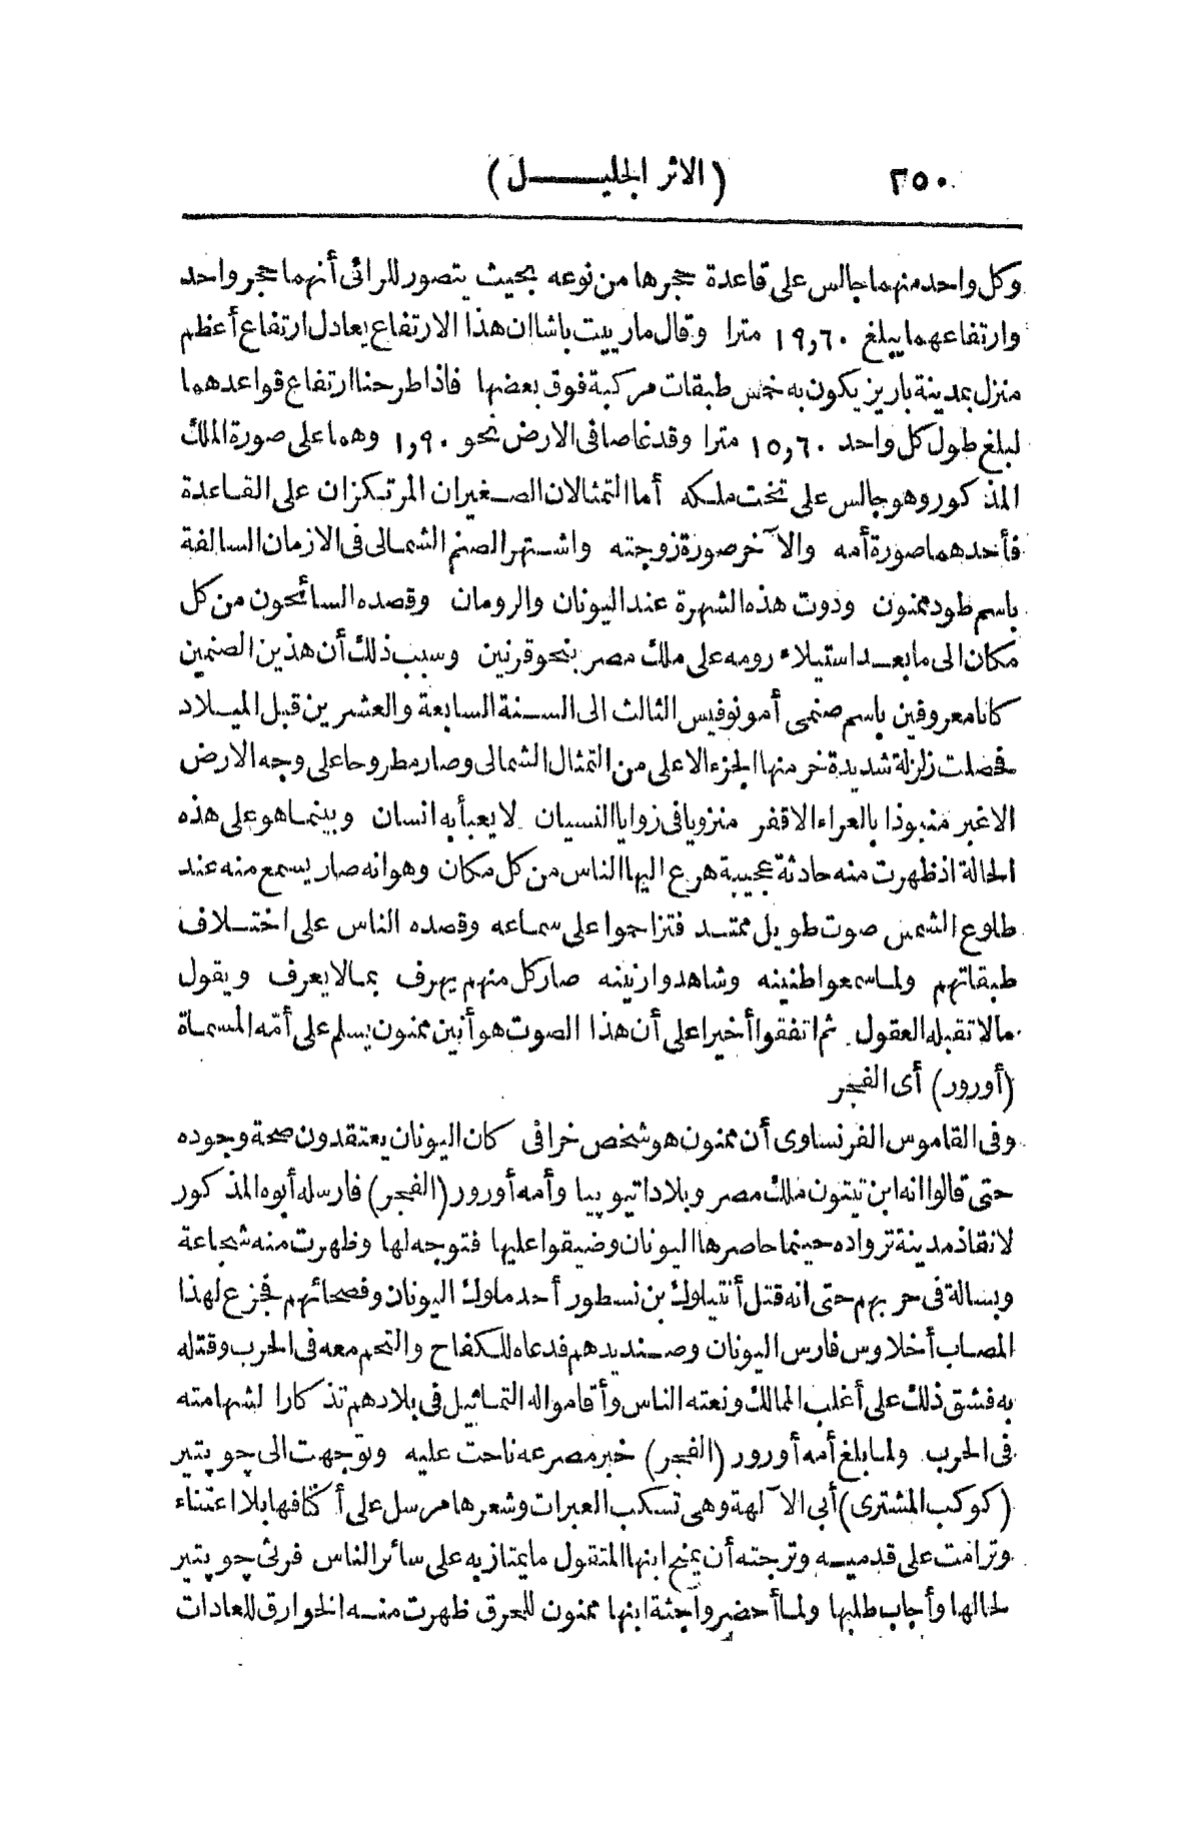 ٢٥٠ (الاثر الجليل)
وكل واحد منهما جالس على قاعدة حجرها من نوعه بحيث يتصور للرائى أنهما حجر واحد
وارتفاعهما يبلغ ١٩,٦٠ مترا وقال مارييت باشا ان هذا الارتفاع يعادل ارتفاع أعظم
منزل بمدينة باريز يكون به خمس طبقات مركبة فوق بعضها فاذا طرحنا ارتفاع قواعدهما
لبلغ طول كل واحد ١٥,٦٠ مترا وقد غاصا فى الارض نحو ١,٩٠ وهما على صورة الملك
المذكور وهو جالس على تخت ملكه أما التمثالان الصغيران المرتكزان على القاعدة
فأحدهما صورة أمه والآخر صورة زوجته واشتهر الصنم الشمالى فى الازمان السالفة
باسم طود ممنون ودوت هذه الشهرة عند اليونان والرومان وقصده السائحون من كل
مكان الى ما بعد استيلاء رومه على ملك مصر بنحو قرنين وسبب ذلك أن هذين الصنمين
كانا معروفين باسم صنمى أمونوفيس الثالث الى السنة السابعة والعشرين قبل الميلاد
فحصلت زلزلة شديدة خر منها الجزء الاعلى من التمثال الشمالى وصار مطروحا على وجه الارض
الاغبر منبوذا بالعراء الاقفر منزويا فى زوايا النسيان لا يعبأ به انسان وبينما هو على هذه
الحالة اذ ظهرت منه حادثة عجيبة هرع اليها الناس من كل مكان وهو انه صار يسمع منه عند
طلوع الشمس صوت طويل ممتد فتزاحموا على سماعه وقصده الناس على اختلاف
طبقاتهم ولما سمعوا طنينه وشاهدوا رنينه صار كل منهم يهرف بما لا يعرف ويقول
ما لا تقبله العقول ثم اتفقوا أخيرا على أن هذا الصوت هو أنين ممنون يسلم على أمّه المسماة
(أورور) أى الفجر
وفى القاموس الفرنساوى أن ممنون هو شخص خرافى كان اليونان يعتقدون صحة وجوده
حتى قالوا انه ابن تيتون ملك مصر وبلاد اتيوبيا وأمه أورور (الفجر) فارسله أبوه المذكور
لانقاذ مدينة ترواده حينما حاصرها اليونان وضيقوا عليها فتوجه لها وظهرت منه شجاعة
وبسالة فى حربهم حتى انه قتل أنتيلوك بن نسطور أحد ملوك اليونان وفصحائهم فجزع لهذا
المصاب أخلاوس فارس اليونان وصنديدهم فدعاه للكفاح والتحم معه فى الحرب وقتله
به فشق ذلك على أغلب الممالك ونعته الناس وأقاموا له التماثيل فى بلادهم تذكارا لشهامته
فى الحرب ولما بلغ أمه أورور (الفجر) خبر مصرعه ناحت عليه وتوجهت الى جوپتير
(كوكب المشترى) أبى الآلهة وهى تسكب العبرات وشعرها مرسل على أكتافها بلا اعتناء
وترامت على قدميه وترجته أن يمنح ابنها المتقول ما يمتاز به على سائر الناس فرثى جوپتير
لحالها وأجاب طلبها ولما أحضروا جثة ابنها ممنون للحرق ظهرت منه الخوارق للعادات